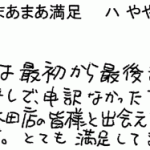 まあまあ満足　ハ やや
は最初から最後
しで、申訳なかった
田店の皆様と出会え
。とても満足してま